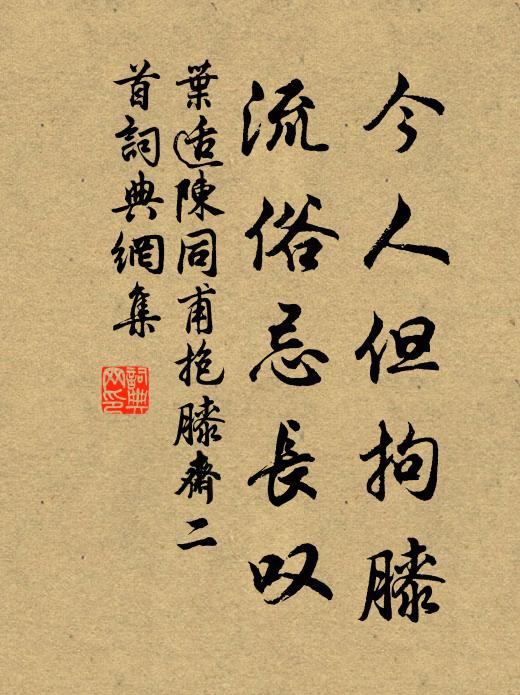 今人但拘膝
流俗忌長叹
葉适陳同甫抱膝齋二
首詞典網集
詞典
网印